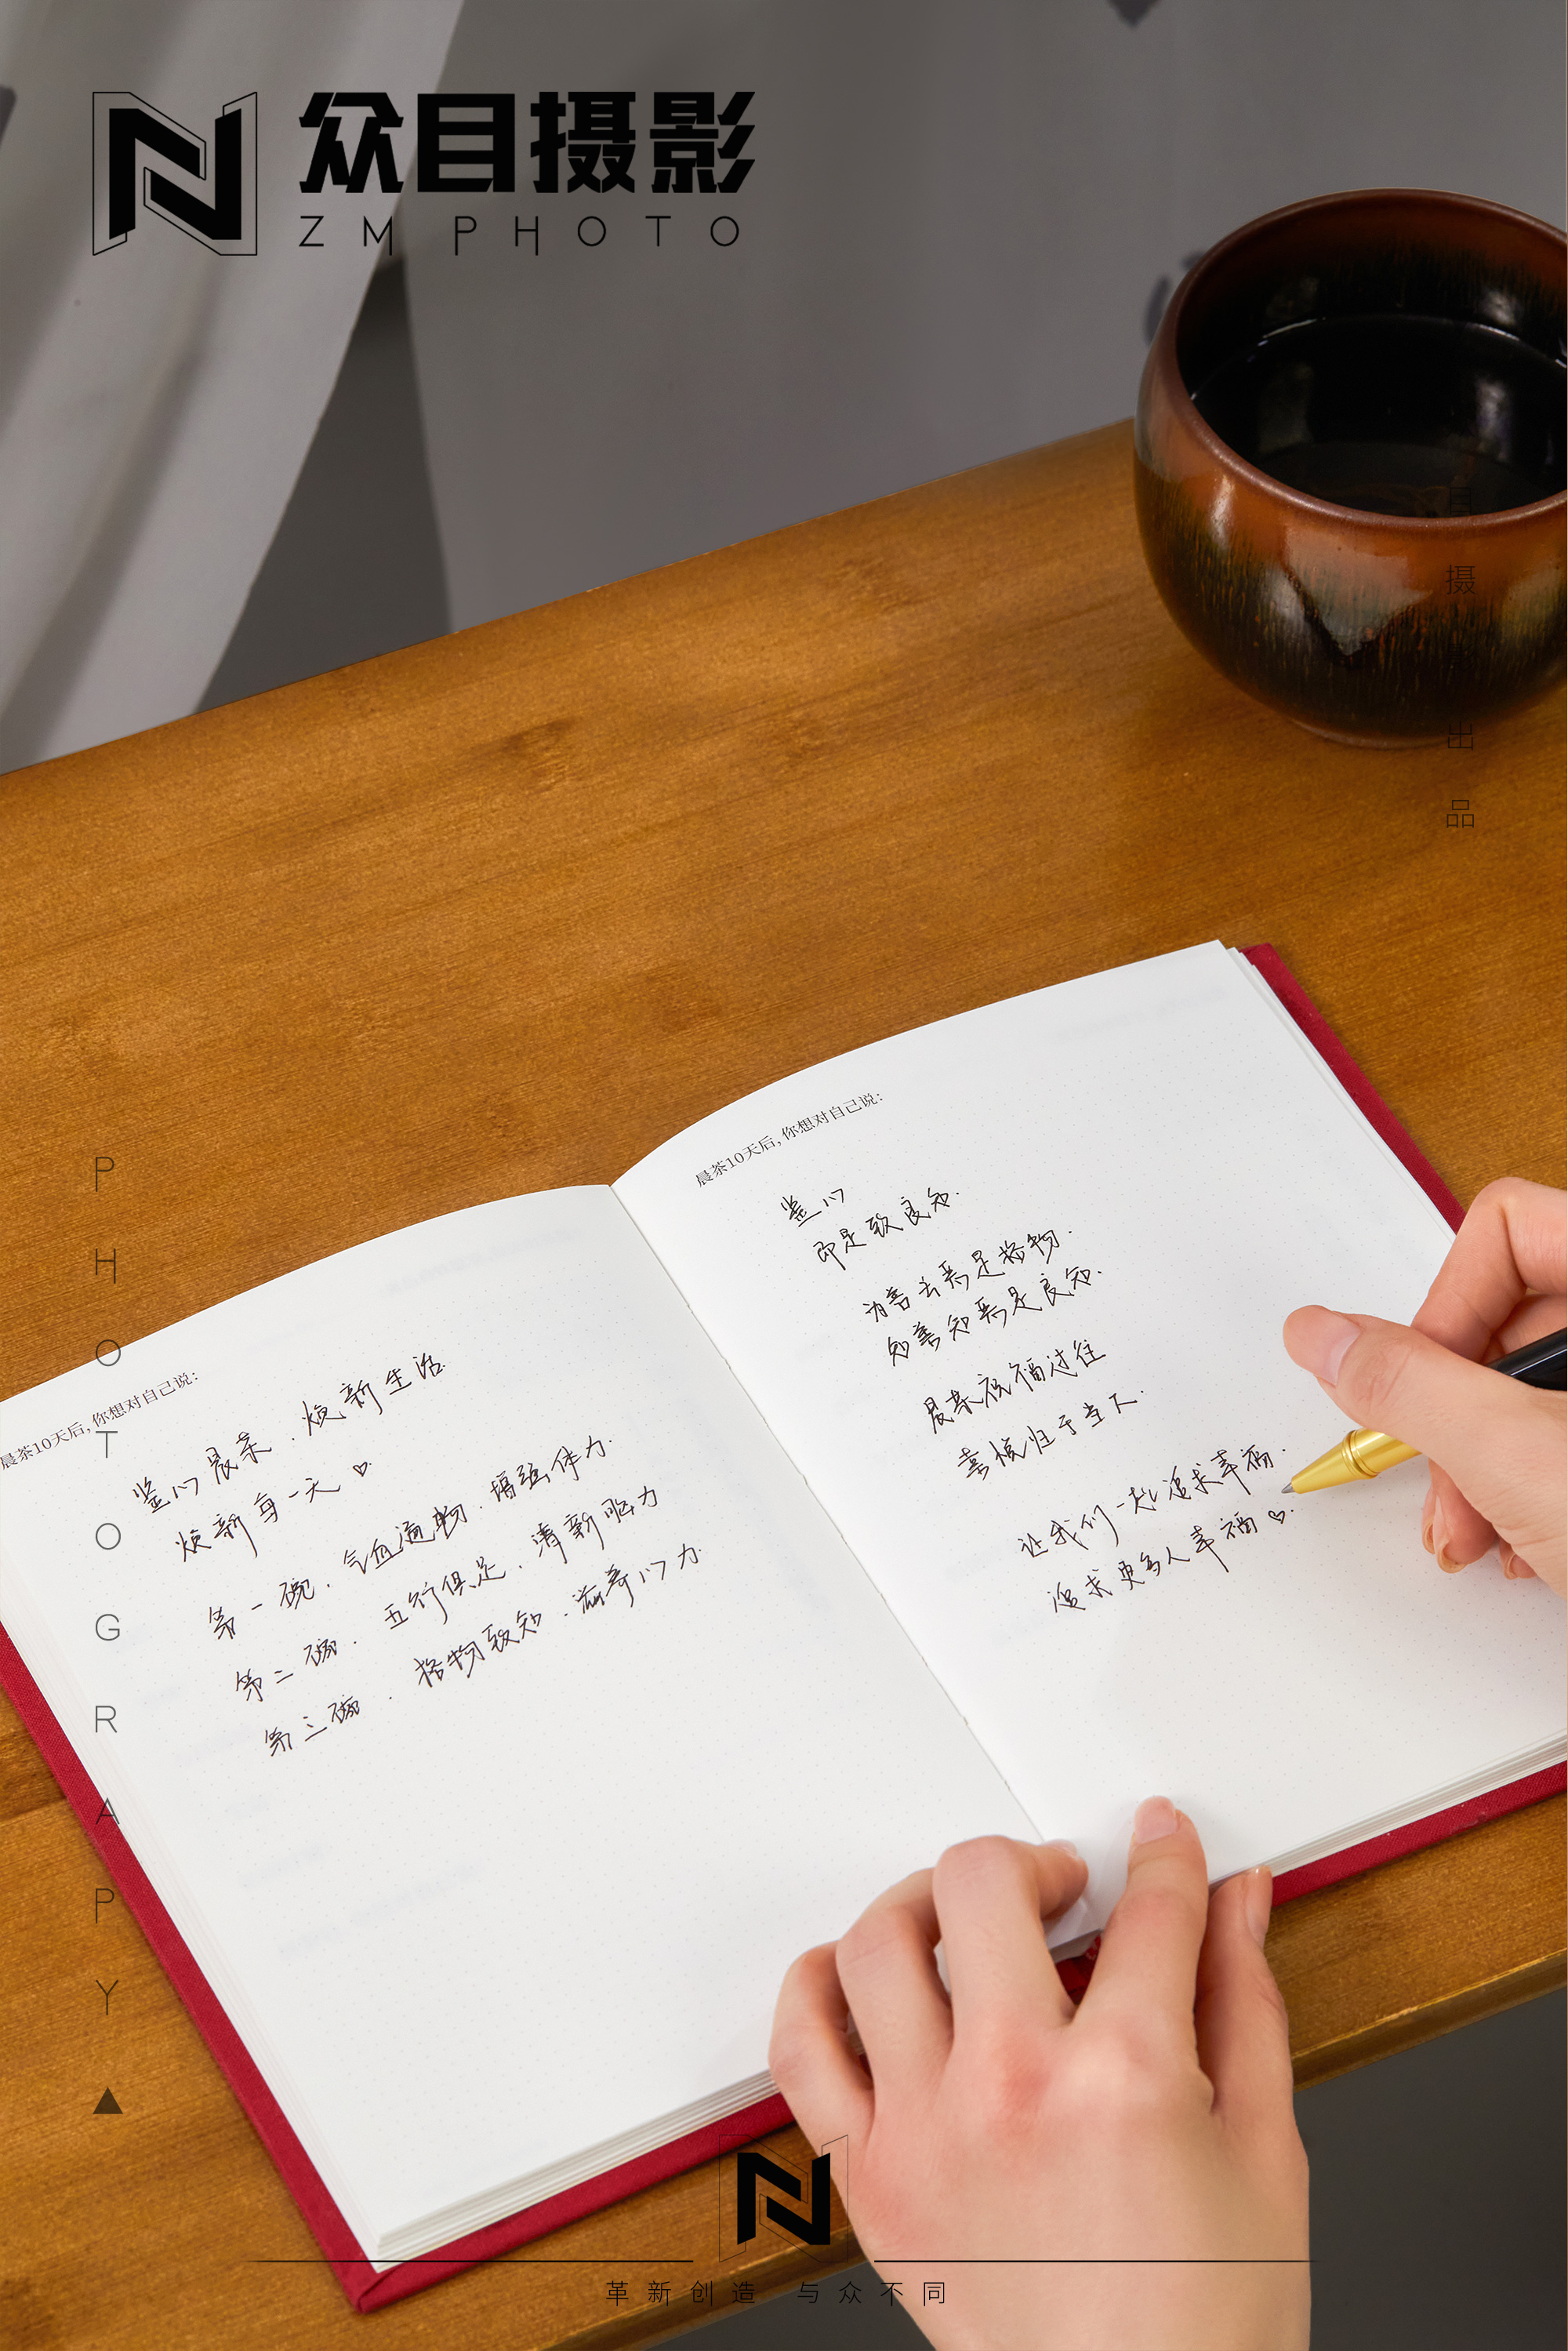 众目摄影
ZM PHOTO
目摄影出品
PHOTOGRAPY
晨茶10天后，你想对自己说：
鉴心晨茶．焕新生活．
焕新每一天♡．
第一碗．气血通畅．增强体力．
第二碗．五行俱足．清新脑力
第三碗．格物致知．滋养心力．
晨茶10天后，你想对自己说：
鉴心
即是致良知．
为善去恶是格物．
知善知恶是良知．
晨茶祝福过往
喜悦归于当下．
让我们一起追求幸福．
追求更多人幸福♡．
革新创造 与众不同